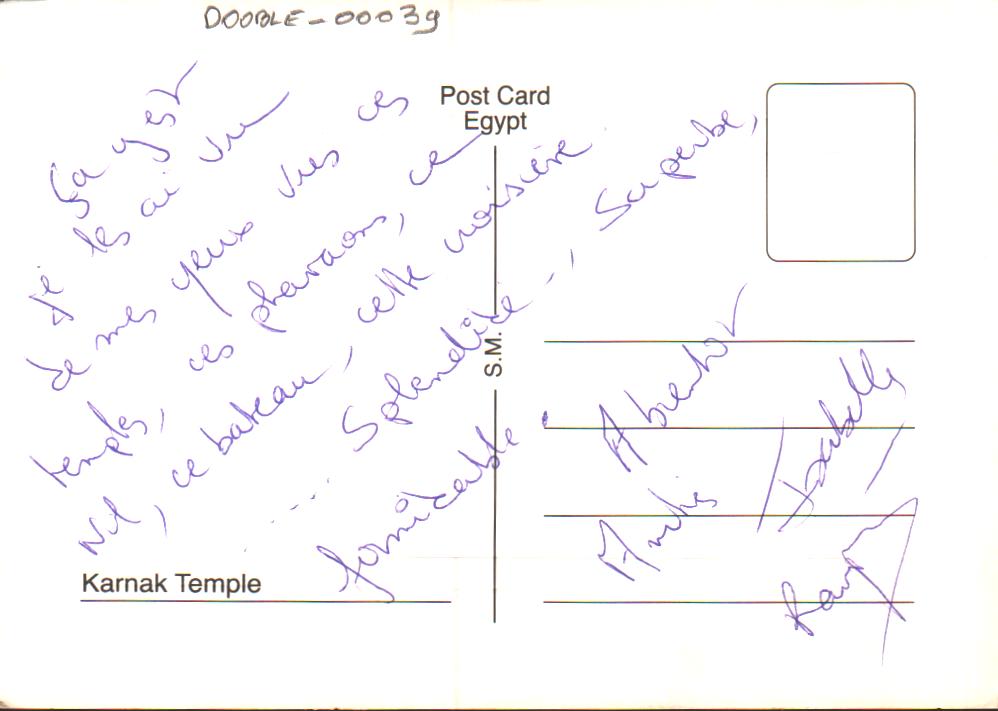 DOOBLE-00039
Post Card
Egypt
Sa yest
je les ai vu
de mes yeux vues ces
temples, ces pharaons, ce
Nil, ce bateau, cette croisière
.... Splendide -, Superbe,
formidable.
A bientôt
Amitiés Isabelle
S.M.
Karnak Temple